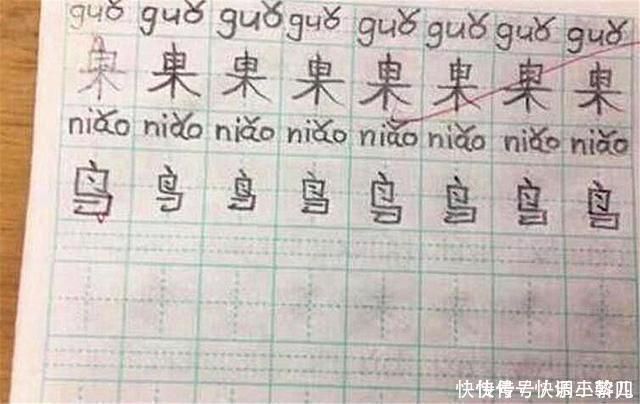 guǒ guǒ guǒ guǒ guǒ guǒ guǒ guǒ
果 果 果 果 果 果 果 果
niǎo niǎo niǎo niǎo niǎo niǎo niǎo niǎo
鸟 鸟 鸟 鸟 鸟 鸟 鸟 鸟